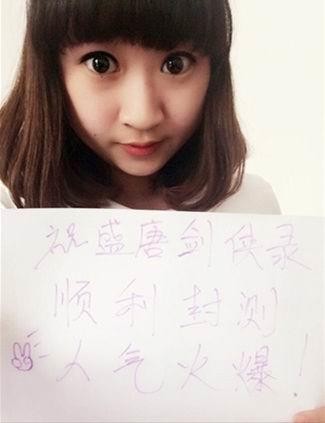 祝盛唐剑侠录
顺利封测
人气火爆！